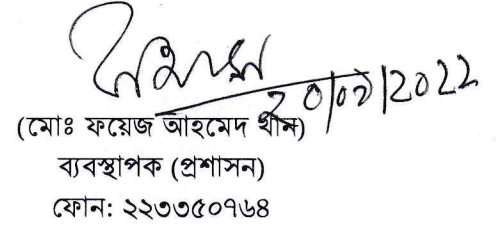 ২০/০৩/2022
(মোঃ ফয়েজ আহমেদ খান)
ব্যবস্থাপক (প্রশাসন)
ফোন: ২২৩৩৫০৭৬৪